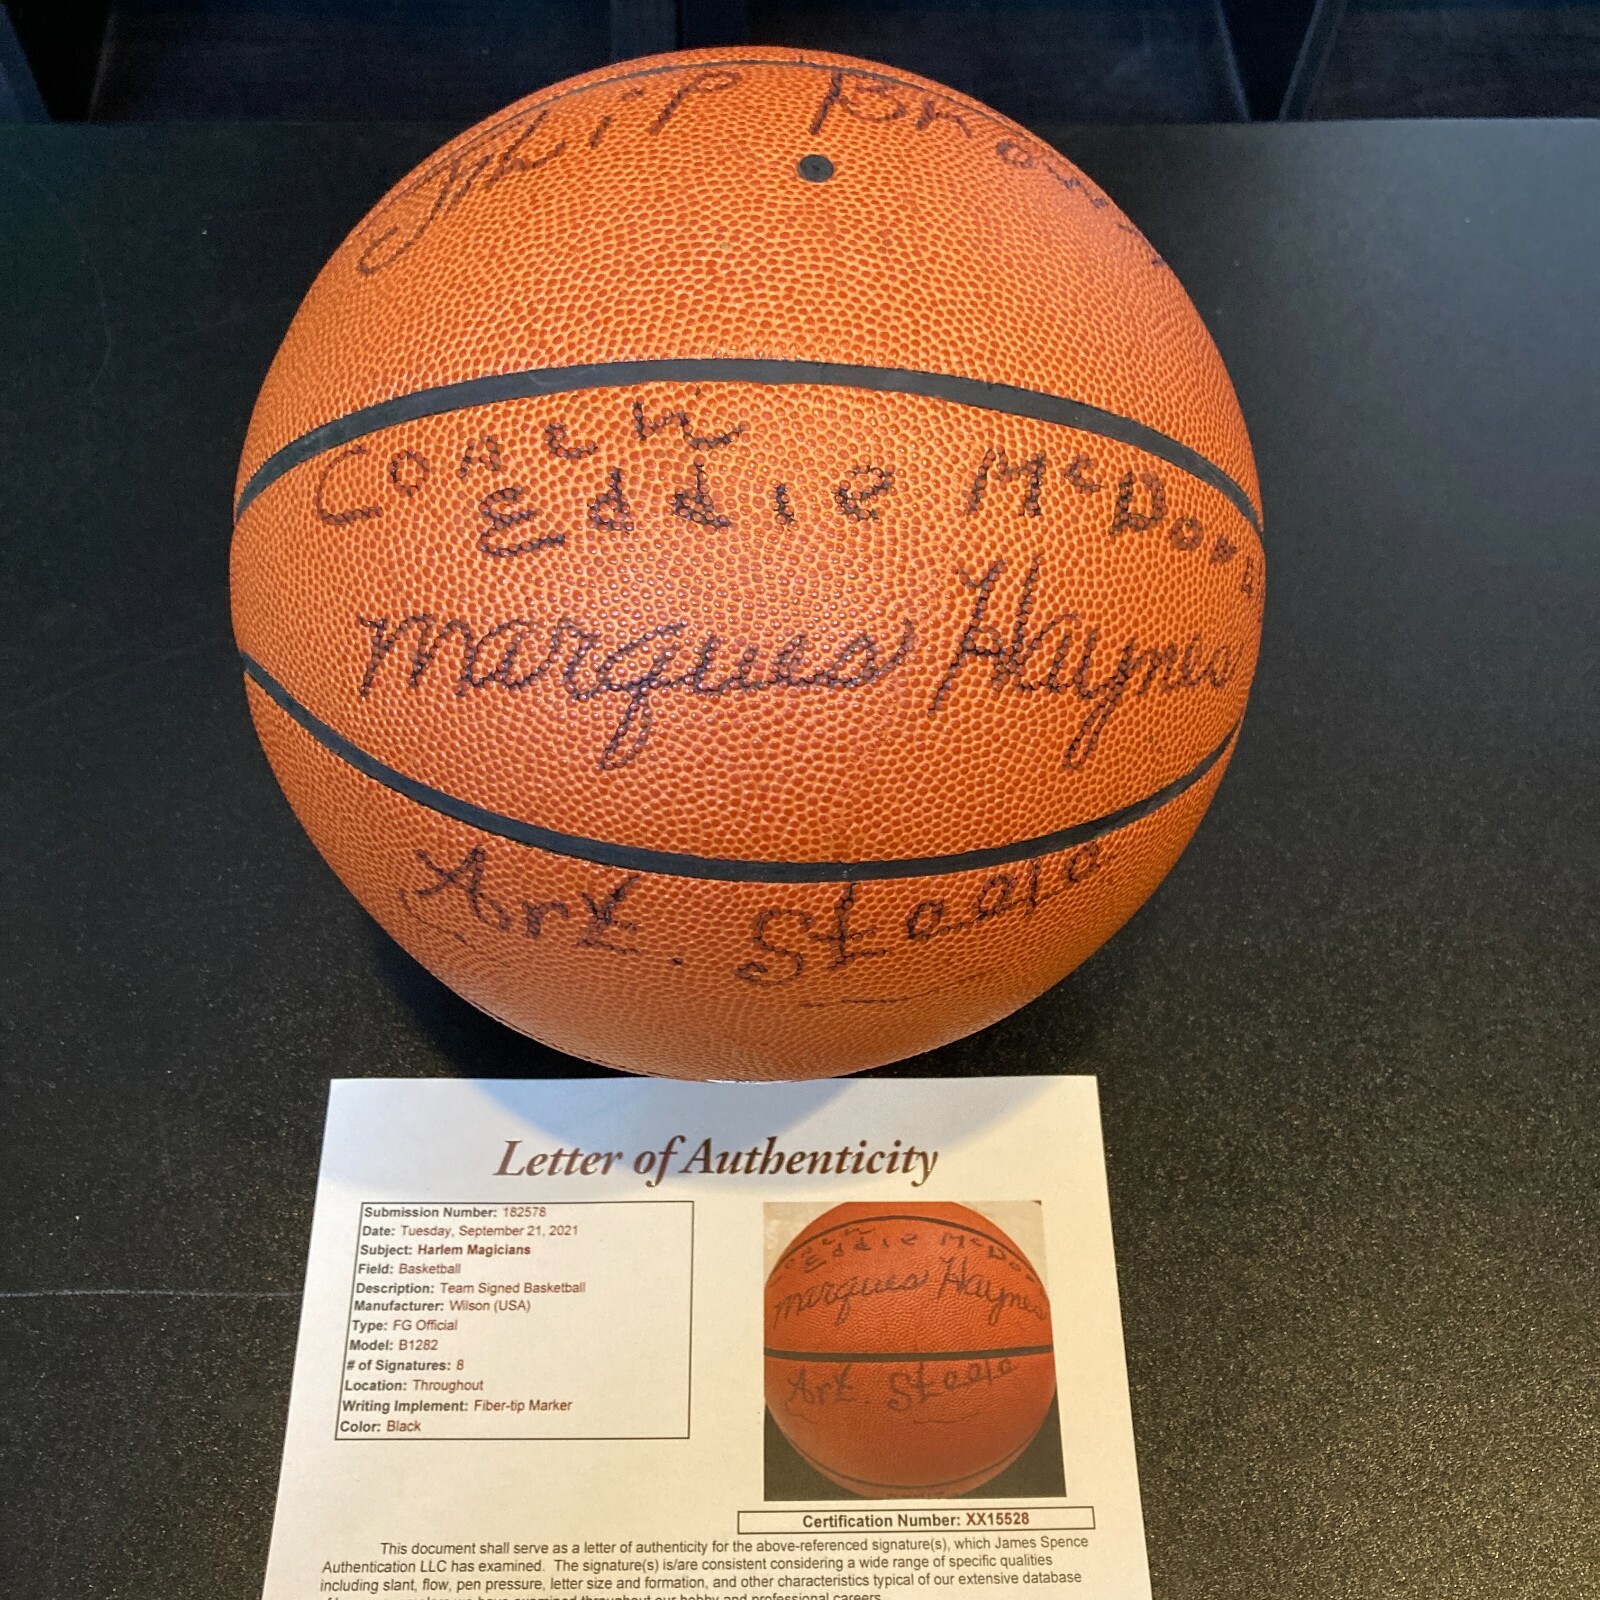 Skip Brown
Coneil
Eddie McDon
Marques Haynes
Art. Steele
Letter of Authenticity
Submission Number: 182578
Date: Tuesday, September 21, 2021
Subject: Harlem Magicians
Field: Basketball
Description: Team Signed Basketball
Manufacturer: Wilson (USA)
Type: FG Official
Model: B1282
# of Signatures: 8
Location: Throughout
Writing Implement: Fiber-tip Marker
Color: Black
Eddie McDo
Marques Haynes
Art. Steele
Certification Number: XX15528
This document shall serve as a letter of authenticity for the above-referenced signature(s), which James Spence
Authentication LLC has examined. The signature(s) is/are consistent considering a wide range of specific qualities
including slant, flow, pen pressure, letter size and formation, and other characteristics typical of our extensive database